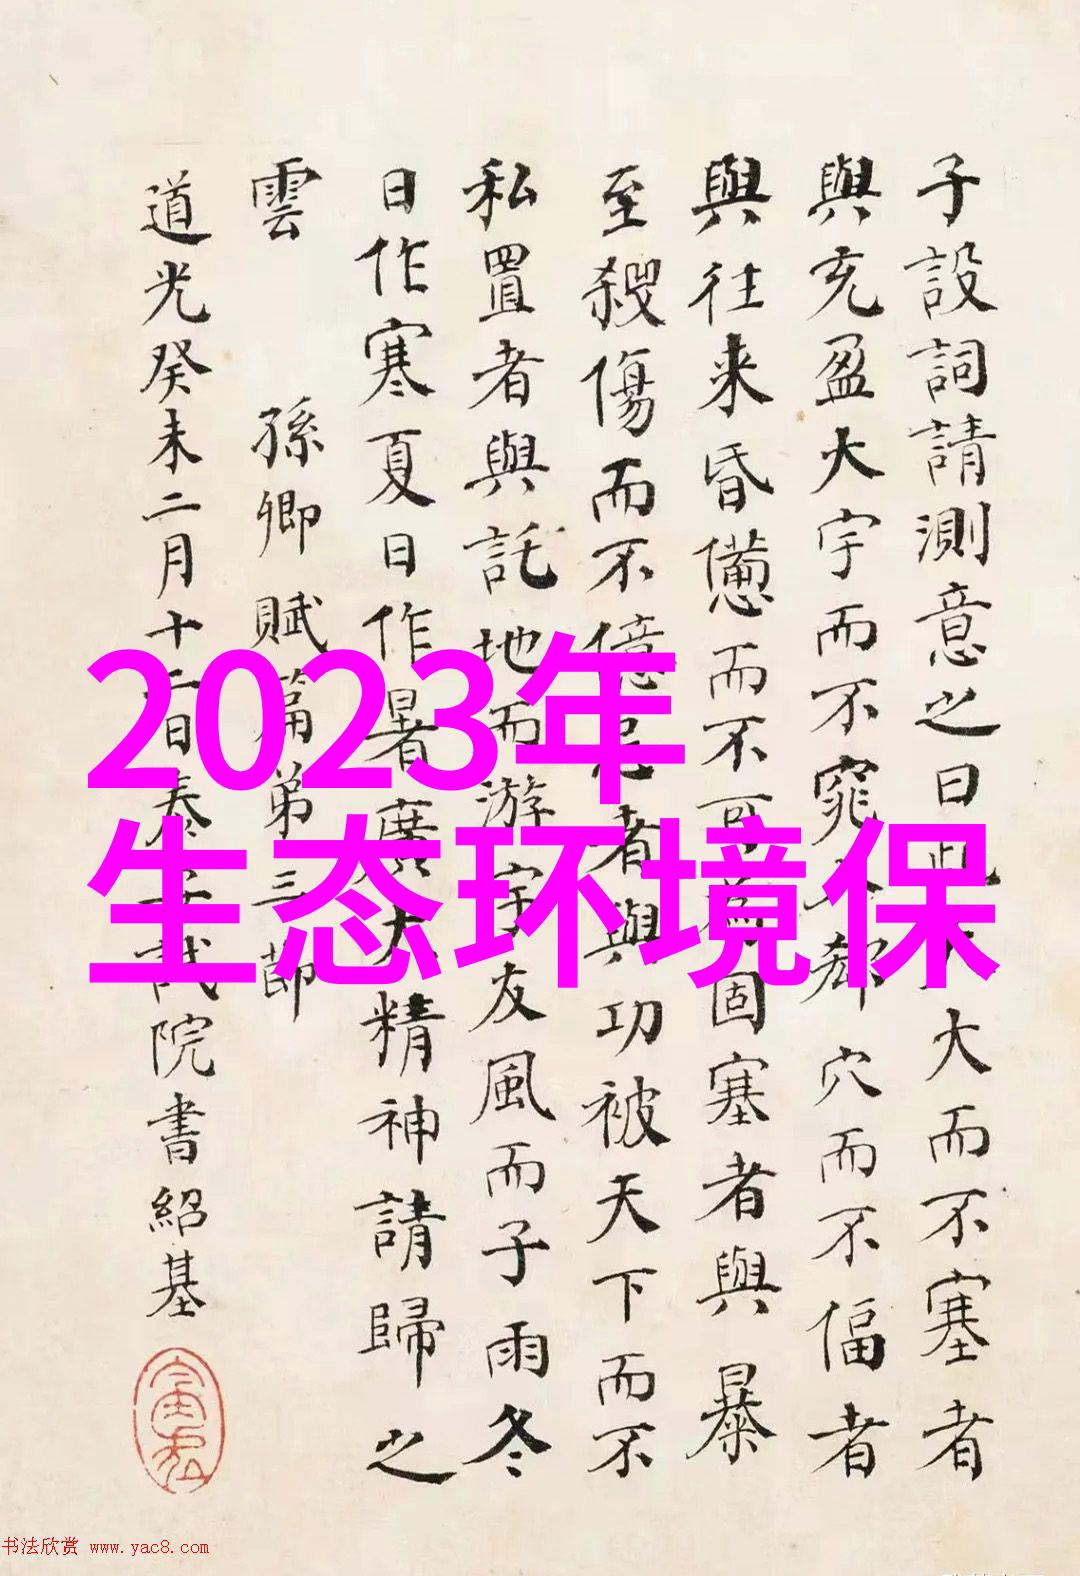 子設詞請測意之曰此夫大而不塞者
與充盈大宇而不窕入郄穴而不偪者
與往来昏憊而不可為固塞者與暴
至殺傷而不億忌者與功被天下而不
私置者與託地而游宇友風而子雨冬
日作寒夏日作暑廣大精神請歸之
雲 孫卿賦篇弟三節
道光癸未二月十二日奏𠀋試院書紹基
2023年
生态环境保
书法欣赏 www.yac8.com